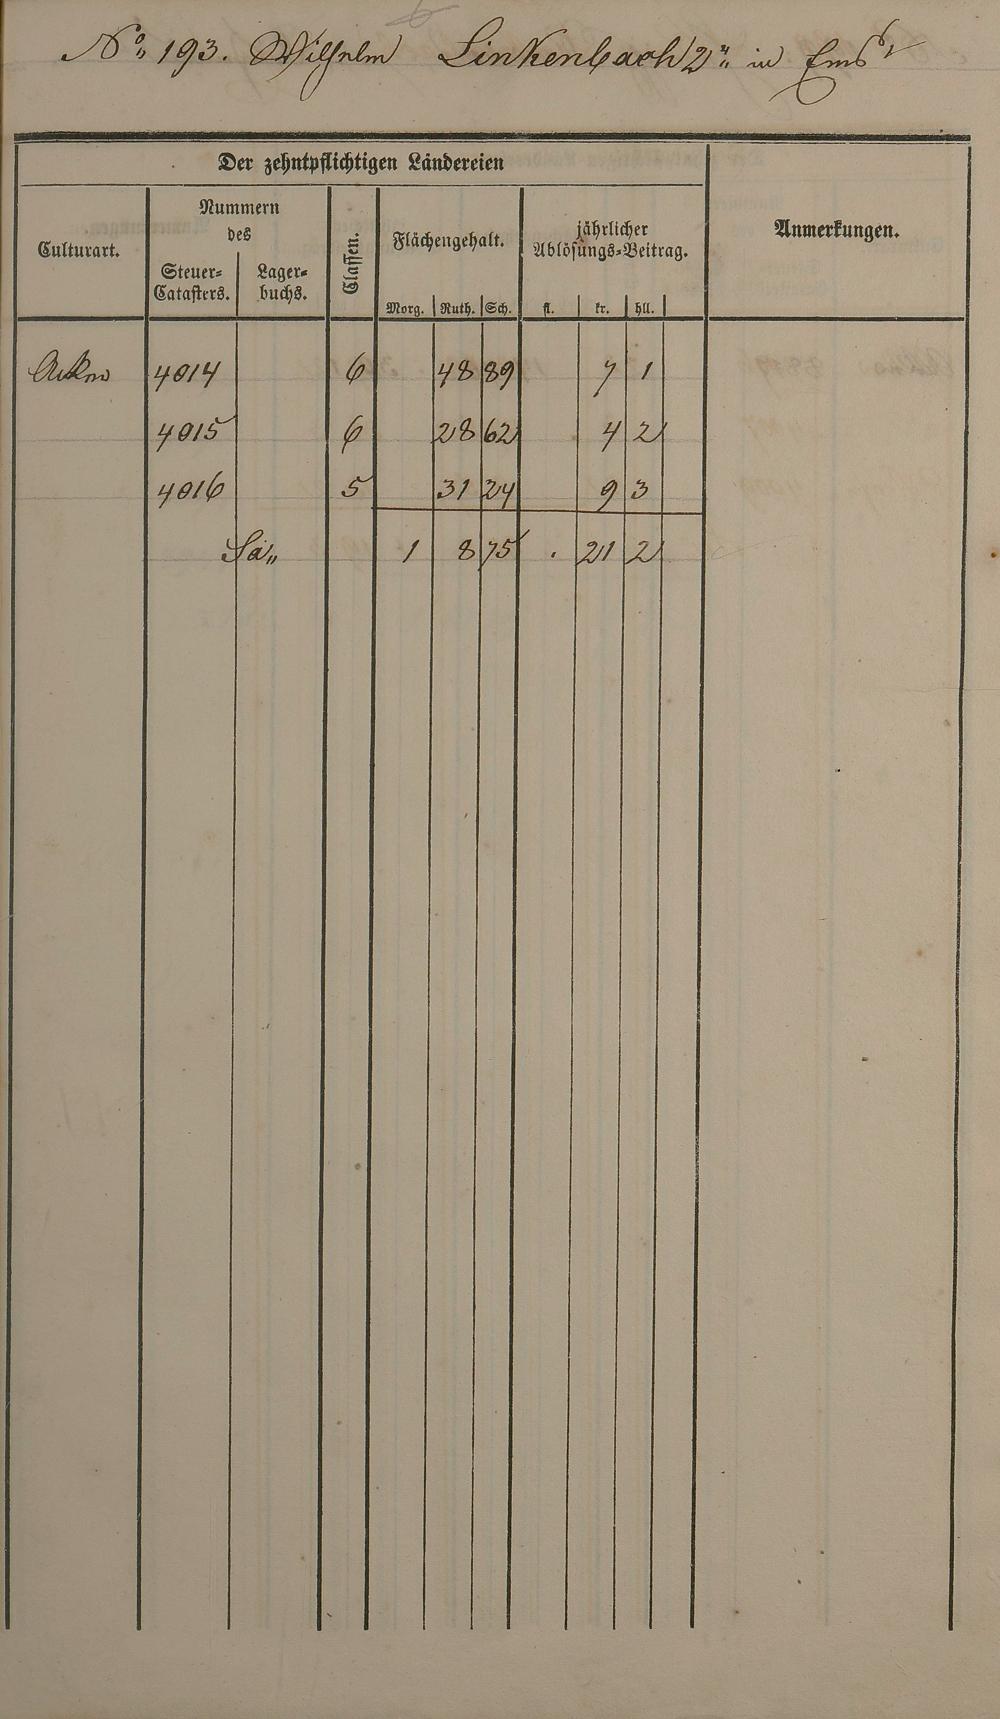 No. 193. Wilhelm Linkenbach 2r in Ems
Der zehntpflichtigen Ländereien
Culturart.
Nummern
des
Steuer-
Catasters.
Lager-
buchs.
Classen.
Flächengehalt.
Morg. Ruth. Sch.
jährlicher
Ablösungs-Beitrag.
fl. kr. hll.
Anmerkungen.
Acker 4014 6 48 89 7 1
4015 6 28 62 4 2
4016 5 31 24 9 3
Sa. 1 8 75 . 21 2